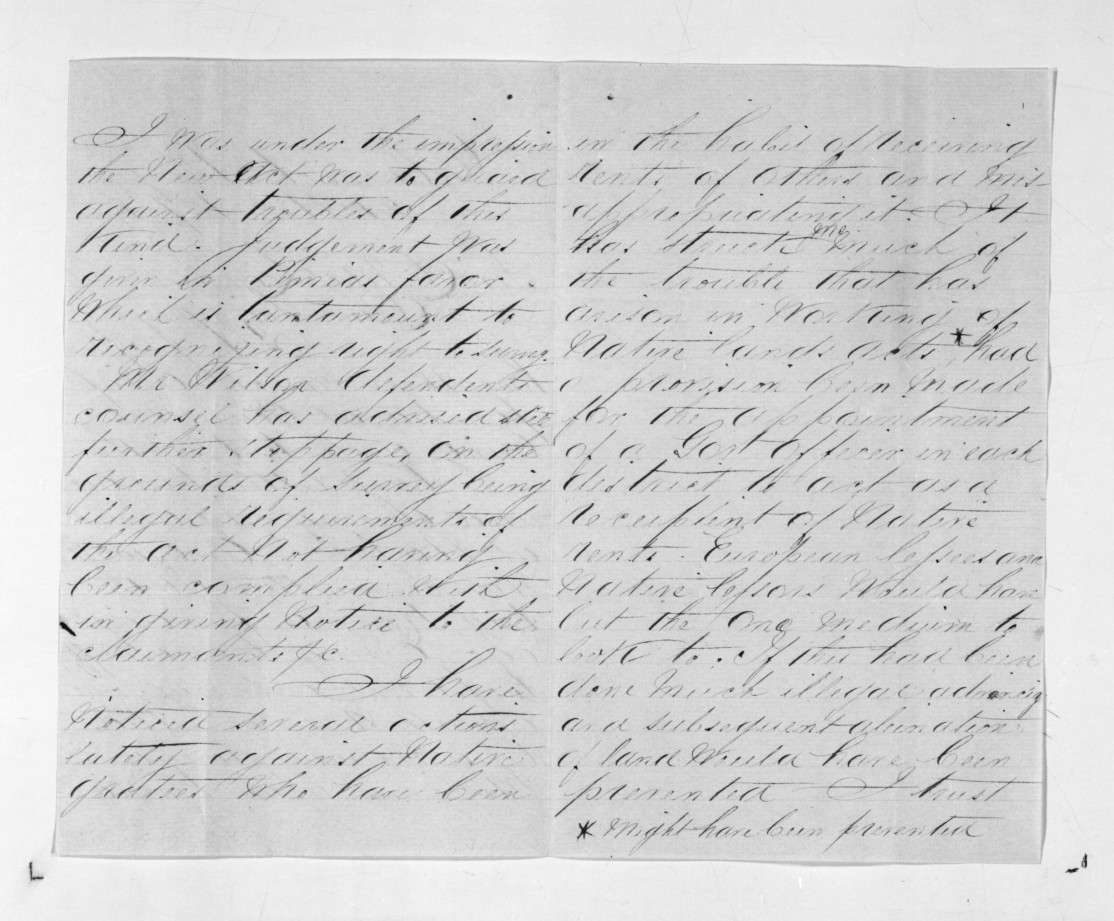 I was under the impression
the New Act was to guard
against troubles of this
kind. Judgement was
givin in Rimias favor.
Which is tantamount to
recognizing right to survey.
Mr Wilson defendents
counsel has advised
further stoppage, on the
grounds of survey being
illegal requirements of
the act Not having
been complied with
in giving Notice to the
claimants &c.
I have
Noticed several actions
lately against Native
grantees who have been
in the habit of receiving
rents of others and mis-
appropriating it. It
has struck me much of
the trouble that has
arisen in Working of
Native lands acts * had
a provision been made
for the appointment
of a Govt Officer in each
district to act as a
recipient of Native
rents. European lessees and
Native lessors Would have
but the One Medium to
look to. If this had been
done Much illegal advancing
and subsequent alienation
of land Would have been
prevented I trust
* might have been prevented